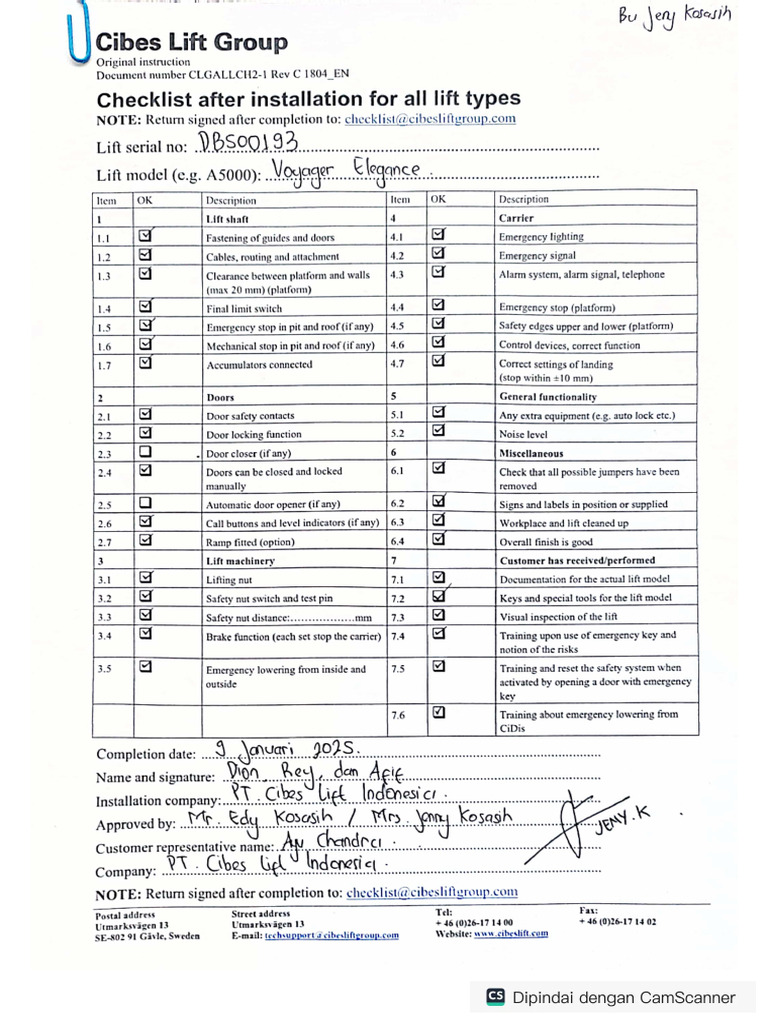 Bu Jeny Kosasih
Cibes Lift Group
Original instruction
Document number CLGALLCH2-1 Rev C 1804_EN
Checklist after installation for all lift types
NOTE: Return signed after completion to: checklist@cibesliftgroup.com
Lift serial no: DBS00193
Lift model (e.g. A5000): Voyager Elegance
Item OK Description Item OK Description
1 Lift shaft 4 Carrier
1.1 ☑ Fastening of guides and doors 4.1 ☑ Emergency lighting
1.2 ☑ Cables, routing and attachment 4.2 ☑ Emergency signal
1.3 ☑ Clearance between platform and walls 4.3 ☑ Alarm system, alarm signal, telephone
(max 20 mm) (platform)
1.4 ☑ Final limit switch 4.4 ☑ Emergency stop (platform)
1.5 ☑ Emergency stop in pit and roof (if any) 4.5 ☑ Safety edges upper and lower (platform)
1.6 ☑ Mechanical stop in pit and roof (if any) 4.6 ☑ Control devices, correct function
1.7 ☑ Accumulators connected 4.7 ☑ Correct settings of landing
(stop within ±10 mm)
2 Doors 5 General functionality
2.1 ☑ Door safety contacts 5.1 ☑ Any extra equipment (e.g. auto lock etc.)
2.2 ☑ Door locking function 5.2 ☑ Noise level
2.3 ☐ Door closer (if any) 6 Miscellaneous
2.4 ☑ Doors can be closed and locked 6.1 ☑ Check that all possible jumpers have been
manually removed
2.5 ☐ Automatic door opener (if any) 6.2 ☑ Signs and labels in position or supplied
2.6 ☑ Call buttons and level indicators (if any) 6.3 ☑ Workplace and lift cleaned up
2.7 ☑ Ramp fitted (option) 6.4 ☑ Overall finish is good
3 Lift machinery 7 Customer has received/performed
3.1 ☑ Lifting nut 7.1 ☑ Documentation for the actual lift model
3.2 ☑ Safety nut switch and test pin 7.2 ☑ Keys and special tools for the lift model
3.3 ☑ Safety nut distance:..................mm 7.3 ☑ Visual inspection of the lift
3.4 ☑ Brake function (each set stop the carrier) 7.4 ☑ Training upon use of emergency key and
notion of the risks
3.5 ☑ Emergency lowering from inside and 7.5 ☑ Training and reset the safety system when
outside activated by opening a door with emergency
key
7.6 ☑ Training about emergency lowering from
CiDis
Completion date: 9 Januari 2025
Name and signature: Dion, Rey, dan Afif
Installation company: PT. Cibes Lift Indonesia
Approved by: Mr. Edy Kosasih / Mrs. Jenny Kosasih
JENY.K
Customer representative name: Ay Chandra
Company: PT. Cibes Lift Indonesia
NOTE: Return signed after completion to: checklist@cibesliftgroup.com
Postal address Street address Tel: Fax:
Utmarksvägen 13 Utmarksvägen 13 + 46 (0)26-17 14 00 + 46 (0)26-17 14 02
SE-802 91 Gävle, Sweden E-mail: techsupport@cibesliftgroup.com Website: www.cibeslift.com
CS Dipindai dengan CamScanner